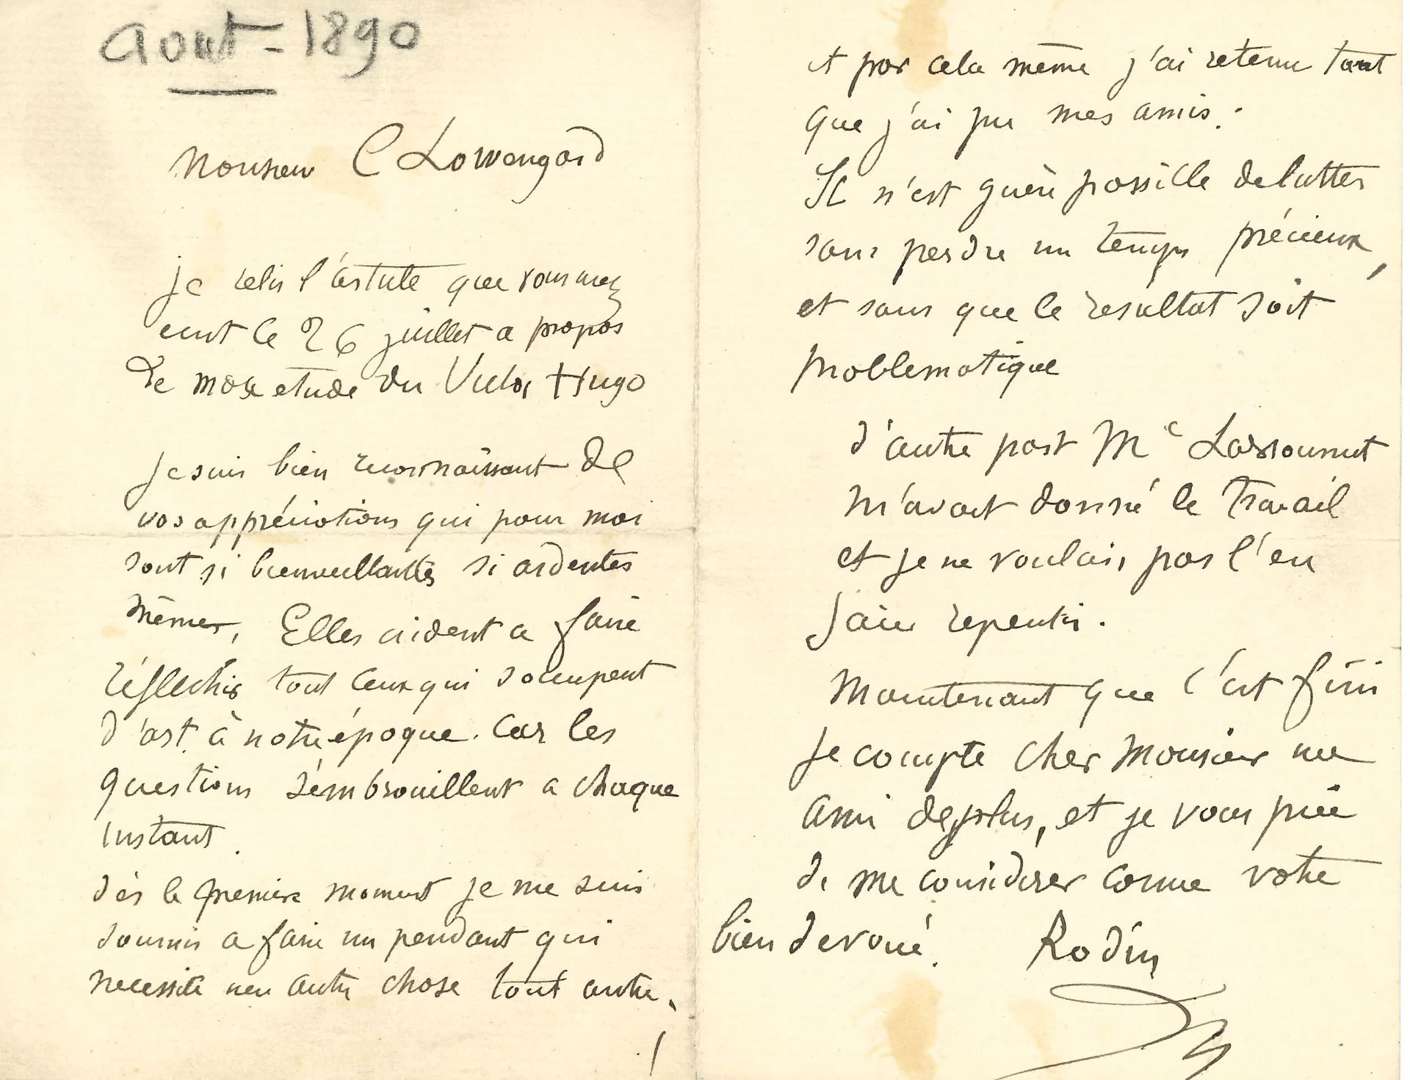 Aout - 1890
Monsieur C Lowengard
je relis l'article que vous avez
ecrit le 26 juillet a propos
de mon etude du Victor Hugo
Je suis bien reconnaissant de
vos appréciations qui pour moi
sont si bienveillantes si ardentes
mêmes, Elles aident a faire
réflechir tout ceux qui s'occupent
d'art à notre époque. Car les
questions s'émbrouillent a chaque
instant.
dès le premiere moment je me suis
soumis a faire un pendant qui
necessite une autre chose tout autre,
et par cela même j'ai retenu tant
que j'ai pu mes amis.
Il n'est guère possible de lutter
sans perdre un temps précieux,
et sans que le resultat soit
problematique
d'autre part Mr Larroumet
m'avait donné le travail
et je ne voulais pas l'en
faire repentir.
Maintenant que c'est fini
je compte cher Monsieur un
ami de plus, et je vous prie
de me considerer comme votre
bien devoué. Rodin